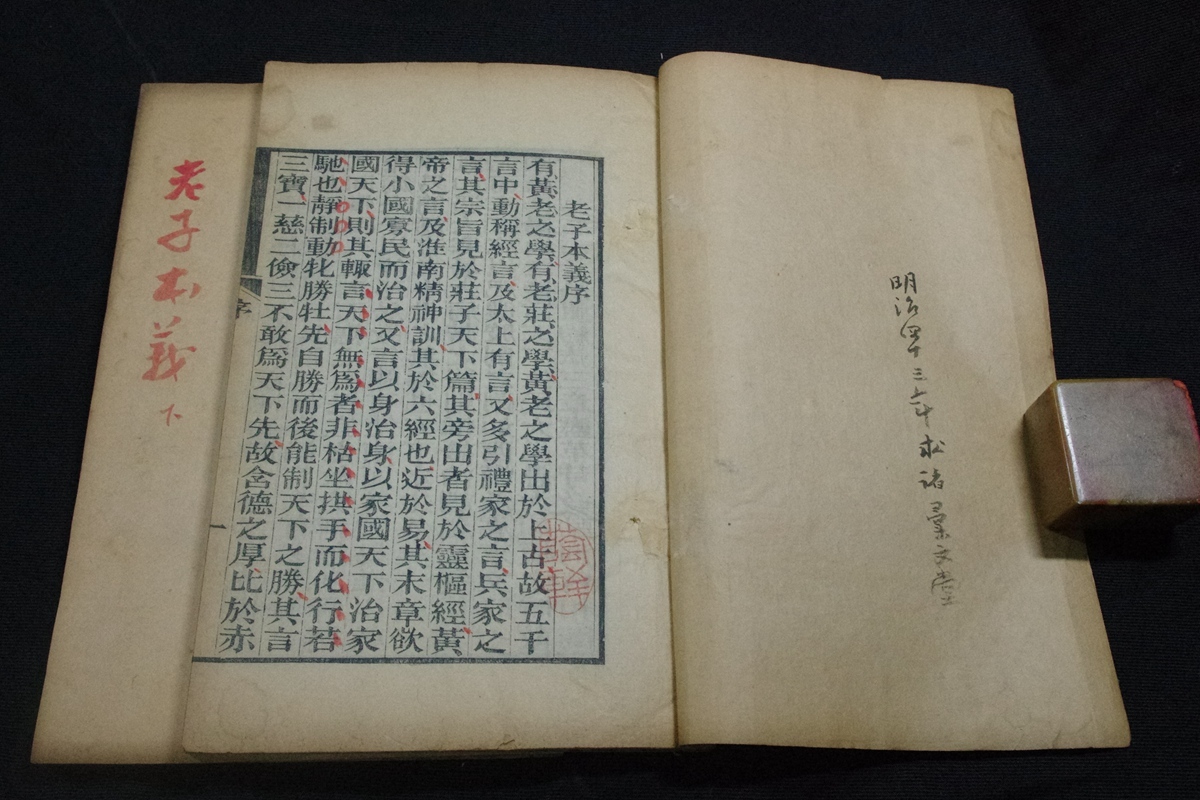 明治四十三年求諸羣文堂
老子本義序
有黃老之學有老莊之學黃老之學出於上古故五千
言中動稱經言及太上有言又多引禮家之言兵家之
言其宗旨見於莊子天下篇其旁出者見於靈樞經黃
帝之言及淮南精神訓其於六經也近於易其末章欲
得小國寡民而治之又言以身治身以家國天下治家
國天下則其輒言天下無爲者非枯坐拱手而化行若
馳也靜制動牝勝牡先自勝而後能制天下之勝其言
三寶一慈二儉三不敢爲天下先故含德之厚比於赤
序
一
老子本義 下